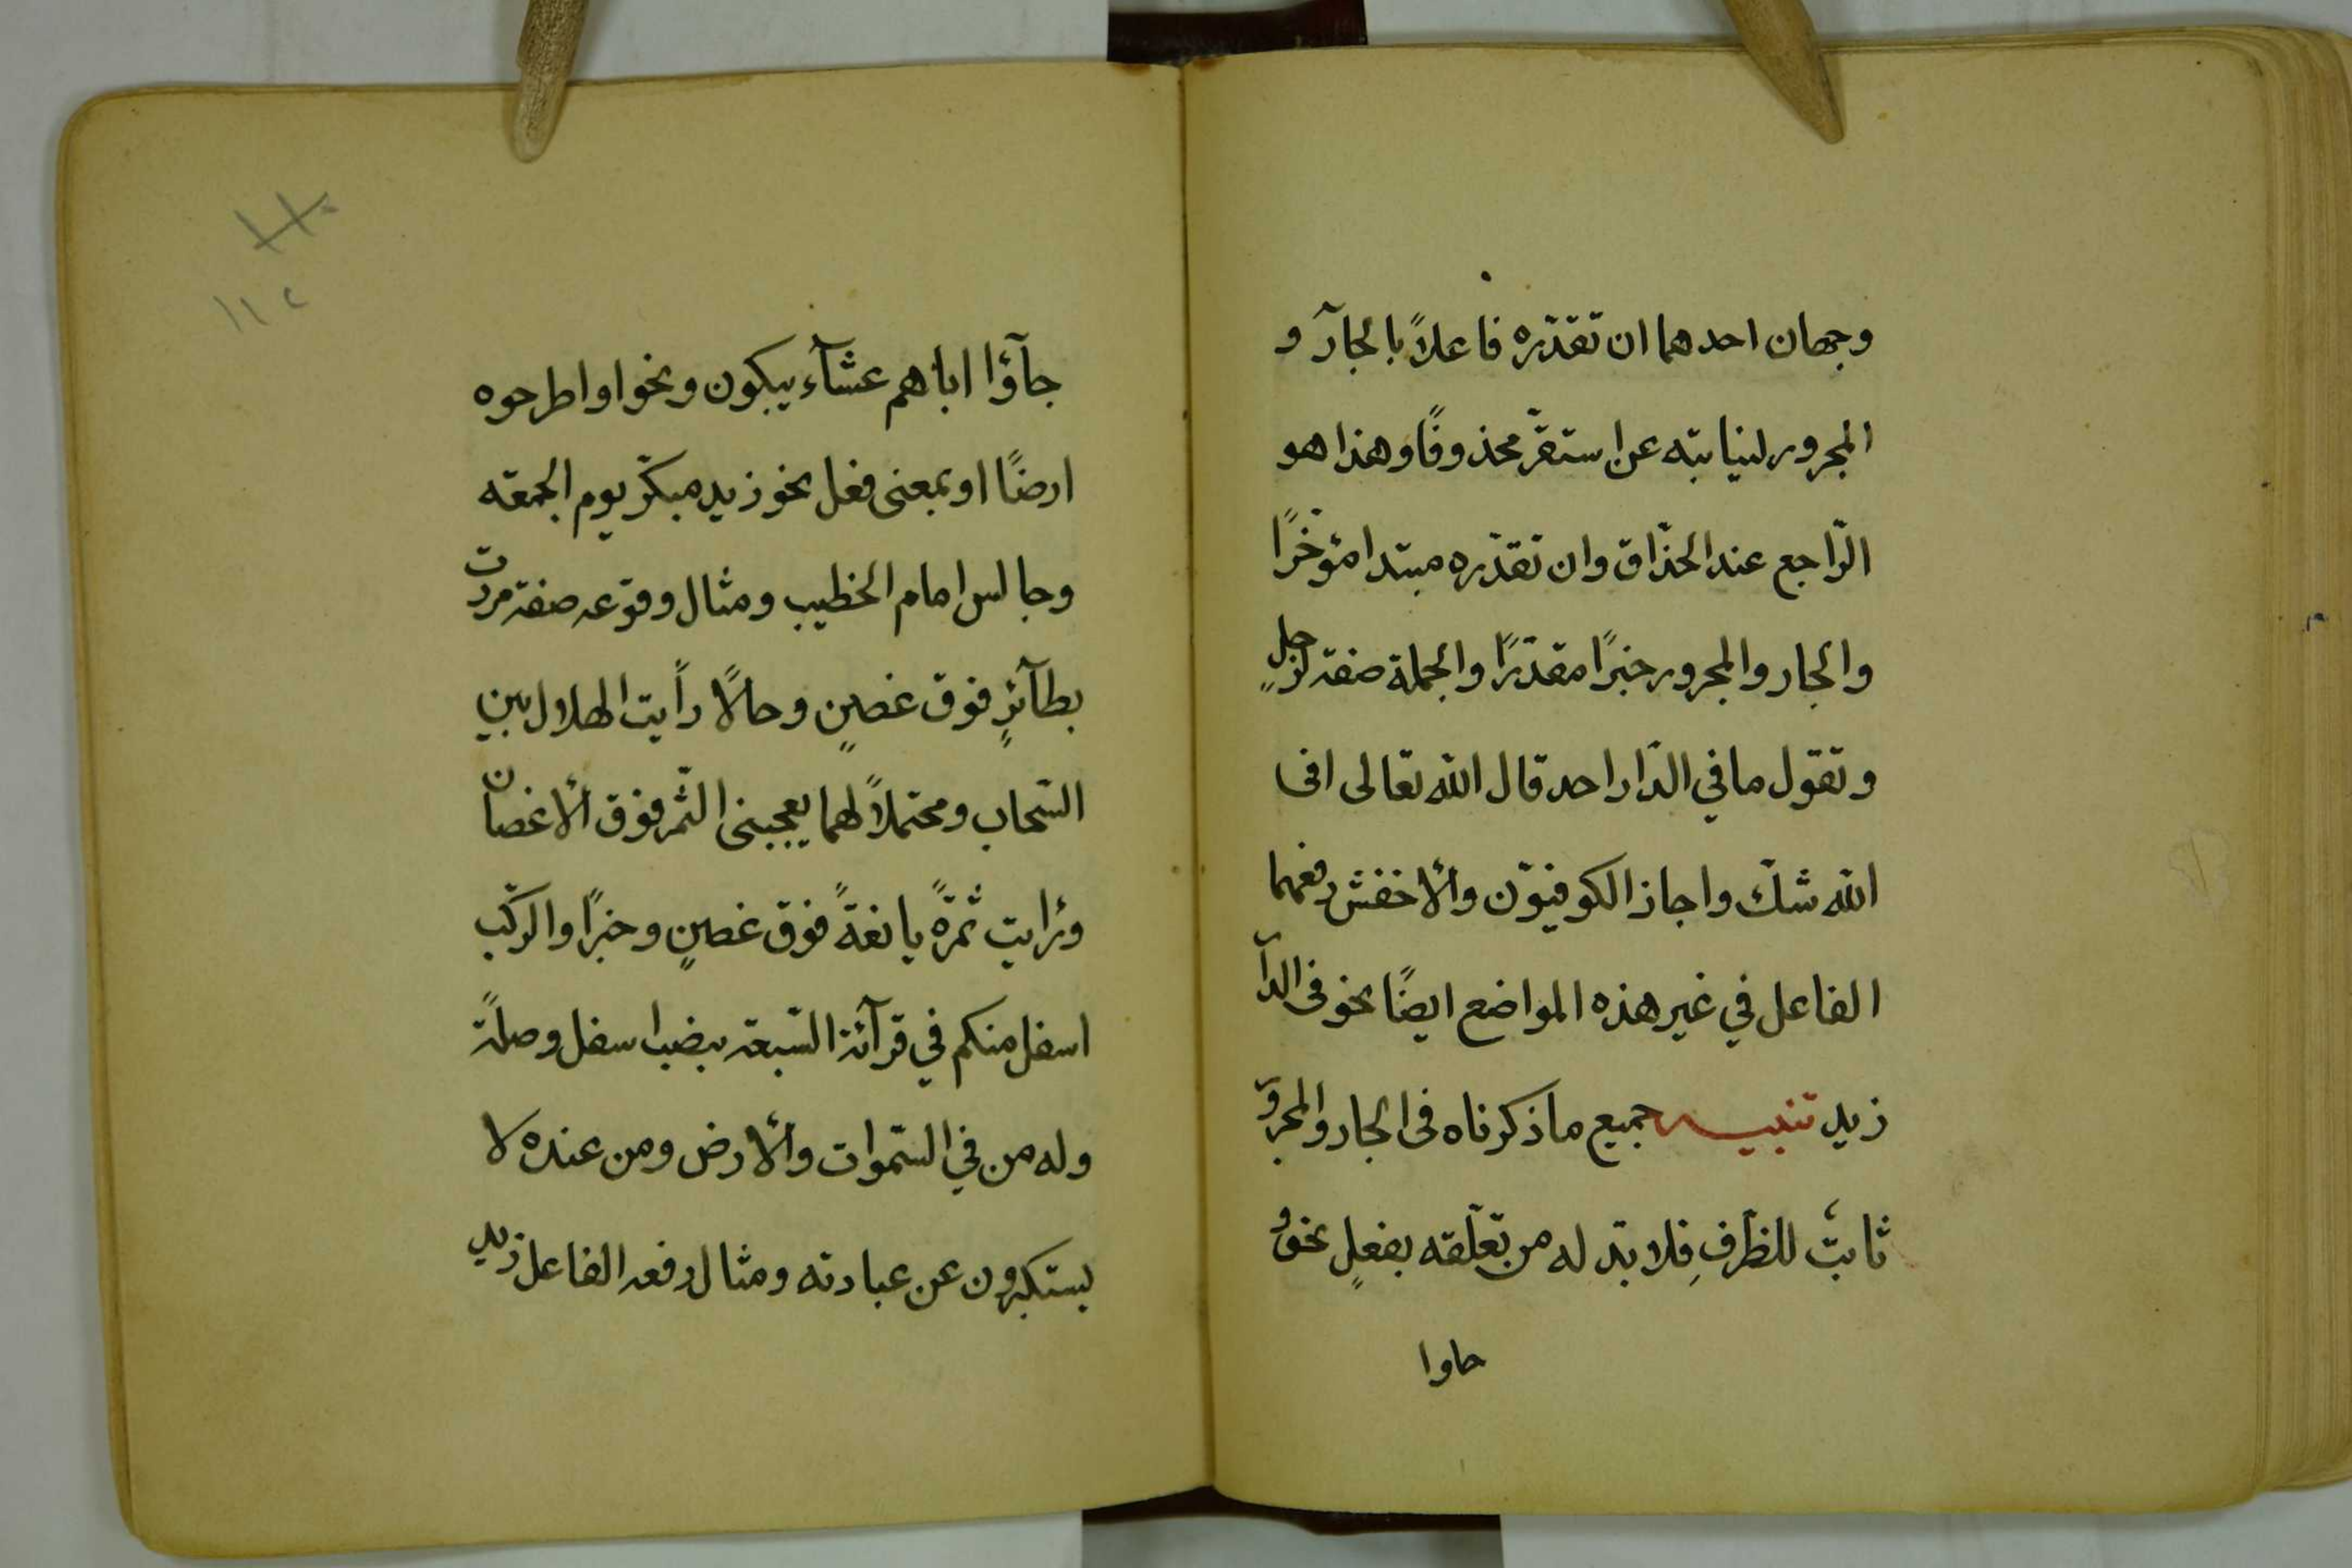 وجهان احدهما ان تقدّره فاعلاً بالجارّ و
المجرور لنيابته عن استقرّ محذوفًا وهذا هو
الرّاجع عند الحذّاق وان تقدّره مبتدا مؤخّرًا
والجار والمجرور خبرًا مقدّرًا والجملة صفة لرجلٍ
وتقول ما في الدّار احد قال الله تعالى افى
الله شكّ واجاز الكوفيّون والأخفش رفعهما
الفاعل في غير هذه المواضع ايضًا نحو فى الدآ
زيد تنبيه جميع ما ذكرناه فى الجار والمجرو
ثابتٌ للظّرفِ فلا بدّ له من تعلّقه بفعلٍ نحو و
حاوا
جآؤا اباهم عشآء يبكون ونحوا واطرحوه
ارضًا او بمعنى فعل نحو زيد مبكّر يوم الجمعة
وجالس امام الخطيب ومثال وقوعه صفة مررت
بطآئرٍ فوق غصنٍ وحالاً رأيت الهلال بين
السّحاب ومحتملاً لهما يعجبنى الثّمر فوق الأغصان
ورايت ثمرةً يانغةً فوق غصنٍ وخبرًا والركّب
اسفل منكم في قرآئة السّبعة بنصب اسفل وصلةً
وله من في السّموات والأرض ومن عنده لا
يستكبرون عن عبادته ومثال رفعه الفاعل زيد
١١٢